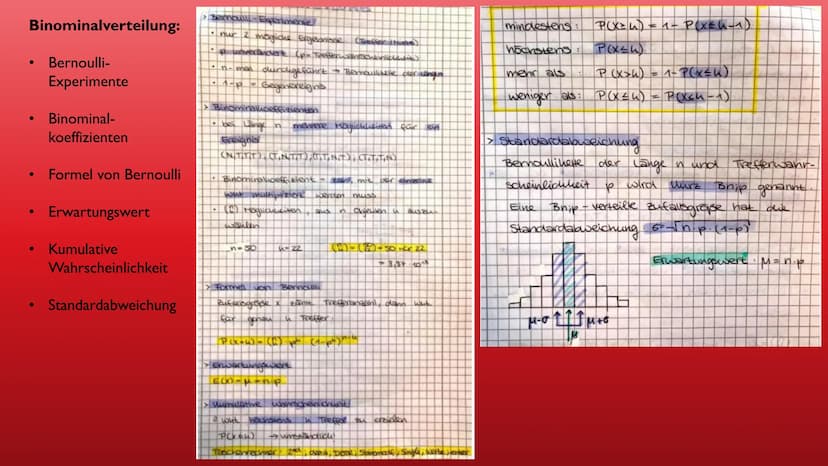 Binominalverteilung:
• Bernoulli-
Experimente
• Binominal-
koeffizienten
• Formel von Bernoulli
• Erwartungswert
• Kumulative
Wahrscheinlichkeit
• Standardabweichung
> Bernoulli-Experimente
• nur 2 mögliche Ergebnisse
• p unverändert
• n-mal durchgeführt → Bernoullikette der Länge
• 1-p = Gegenereignis
> Binominalkoeffizienten
• bei Länge n mehrere Möglichkeiten für ein
Ereignis
(N,T,T,T), (T,N,T,T), (T,T,N,T), (T,T,T,N)
• Binominalkoeffizient = mit der
multipliziert werden muss
• (n k) Möglichkeiten, aus n Objekten k auszu-
wählen
n=50 k=22
> Formel von Bernoulli
Zufallsgröße X zählt Trefferanzahl, dann
für genau k Treffer:
> Erwartungswert
E(X)=μ=n·p
> Kumulative Wahrscheinlichkeit
höchstens k Treffer zu erzielen
P(X≤k)
Taschenrechner: 2nd,
mindestens: P(X≥k) = 1-P(X≤k-1)
höchstens: P(X≤k)
mehr als P(X>k) = 1-P(X≤k)
weniger als: P(X≤k) = P(X≤k-1)
> Standardabweichung
Bernoullikette der Länge n und Trefferwahr-
scheinlichkeit p wird kurz Bn;p genannt.
Eine Bn;p-verteilte Zufallsgröße hat die
Standardabweichung σ=√n·p·(1-p)
Erwartungswert: μ=n·p
μ-σ μ+σ
μ